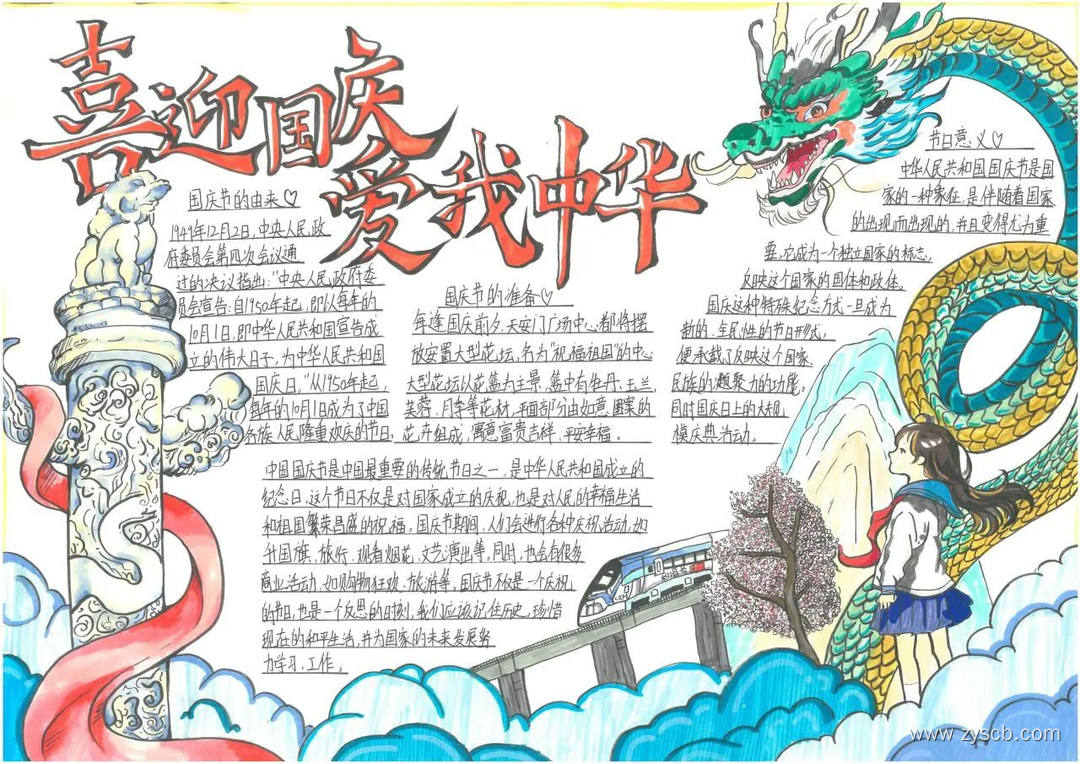 喜迎国庆
爱我中华
国庆节的由来♡
1949年12月2日,中央人民政
府委员会第四次会议通
过的决议指出:"中央人民政府委
员会宣告:自1950年起,即以每年的
10月1日,即中华人民共和国宣告成
立的伟大日子,为中华人民共和国
国庆日。"从1950年起,
每年的10月1日成为了中国
各族人民隆重欢庆的节日,
国庆节的准备♡
每逢国庆前夕,天安门广场中心都将摆
放安置大型花坛,名为"祝福祖国"的中心
大型花坛以花篮为主景,篮中有牡丹、玉兰、
芙蓉、月季等花材,平面部分由如意图案的
花卉组成,寓意富贵吉祥、平安幸福。
节日意义♡
中华人民共和国国庆节是国
家的一种象征,是伴随着国家
的出现而出现的,并且变得尤为重
要,它成为一个独立国家的标志,
反映这个国家的国体和政体。
国庆这种特殊纪念方式一旦成为
新的、全民性的节日形式,
便承载了反映这个国家、
民族的凝聚力的功能。
同时国庆日上的大规
模庆典活动。
中国国庆节是中国最重要的传统节日之一,是中华人民共和国成立的
纪念日,这个节日不仅是对国家成立的庆祝,也是对人民的幸福生活
和祖国繁荣昌盛的祝福,国庆节期间,人们会进行各种庆祝活动,如
升国旗、旅行、观看烟花、文艺演出等,同时,也会有很多
商业活动,如购物狂欢、旅游等,国庆节不仅是一个庆祝
的节日,也是一个反思的时刻,我们应该记住历史,珍惜
现在的和平生活,并为国家的未来发展努
力学习、工作。
www.zyscb.com